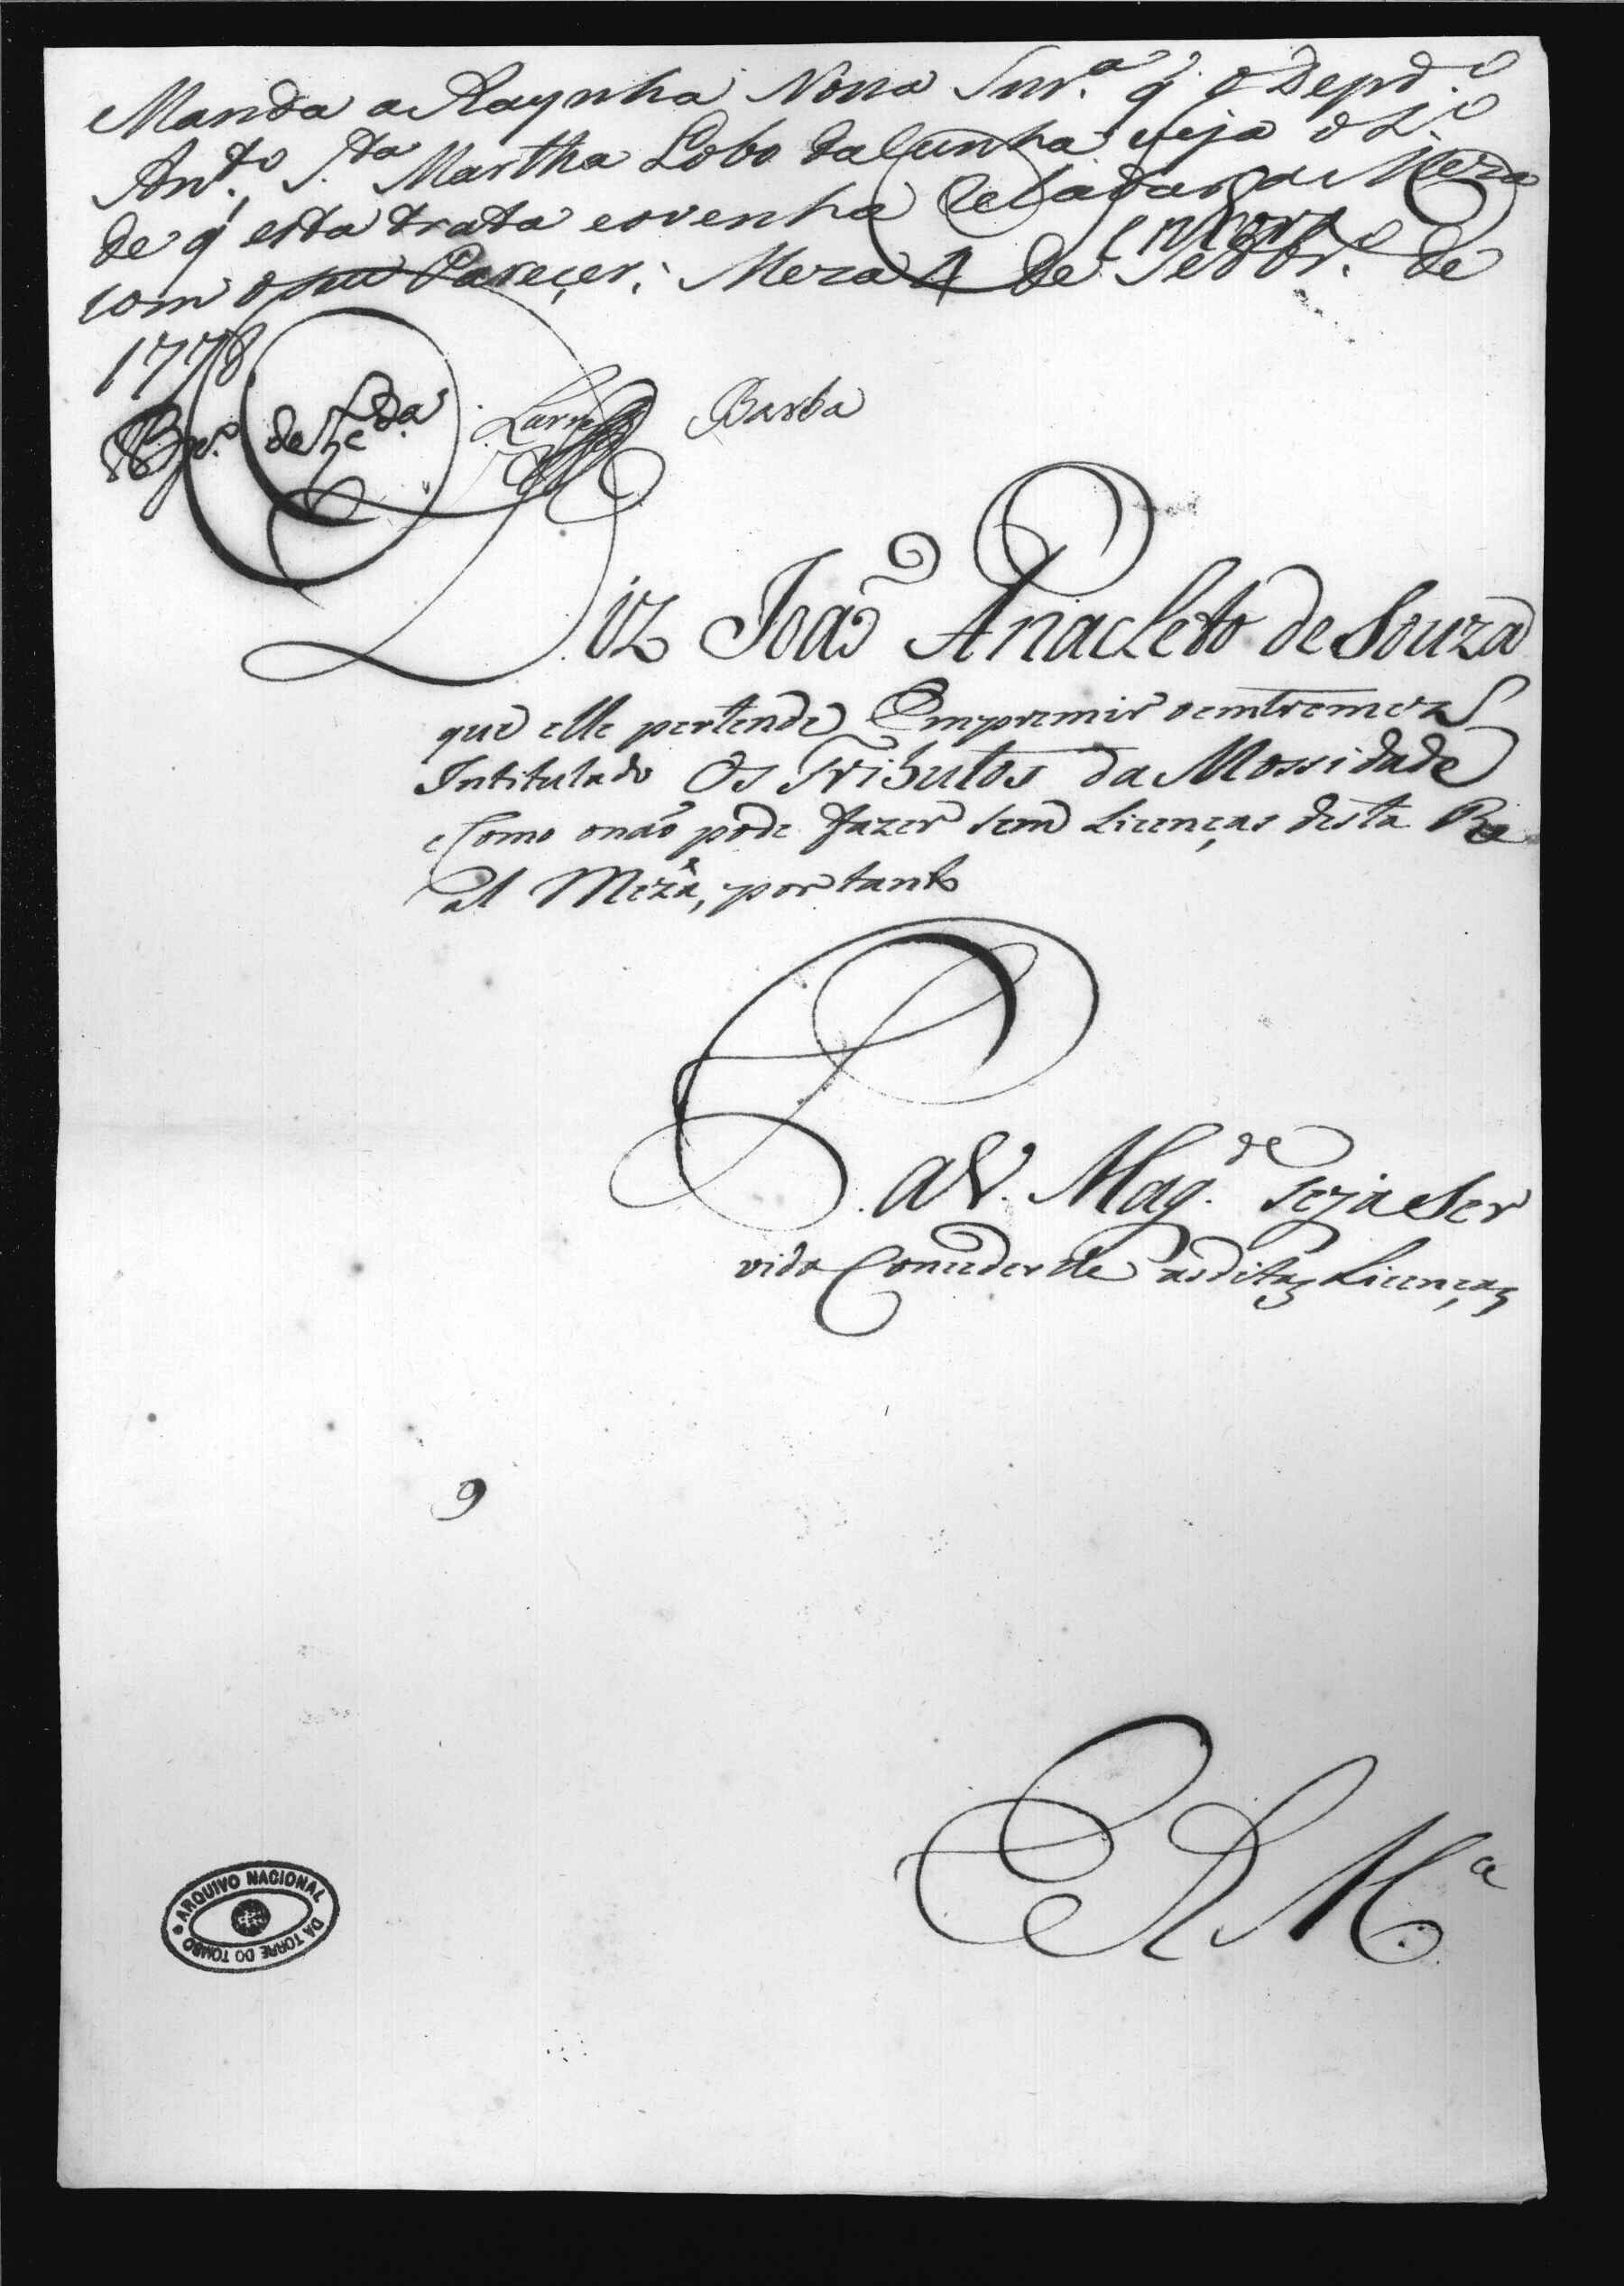 Manda a Raynha Nossa Snr.ª q̃ o Deptd.º
Ant.º S.ta Martha Lobo da Cunha veja o L.º
de q̃ esta trata e o venha relatar a Meza
com o seu Parecer. Meza 4 de Setbr.º de
1778
Bp.º de Barba
Diz Joaõ Anacleto de Souza
que elle pertende Empremir o emtremez
Intitulado Os Tributos da Mossidade
e Como o naõ pode fazer sem Licenças desta Re
al Meza, por tanto
P a V. Mag.de seja Ser
vida Conceder lhe as ditas Licenças
9
E R M.ce
ARQUIVO NACIONAL DA TORRE DO TOMBO